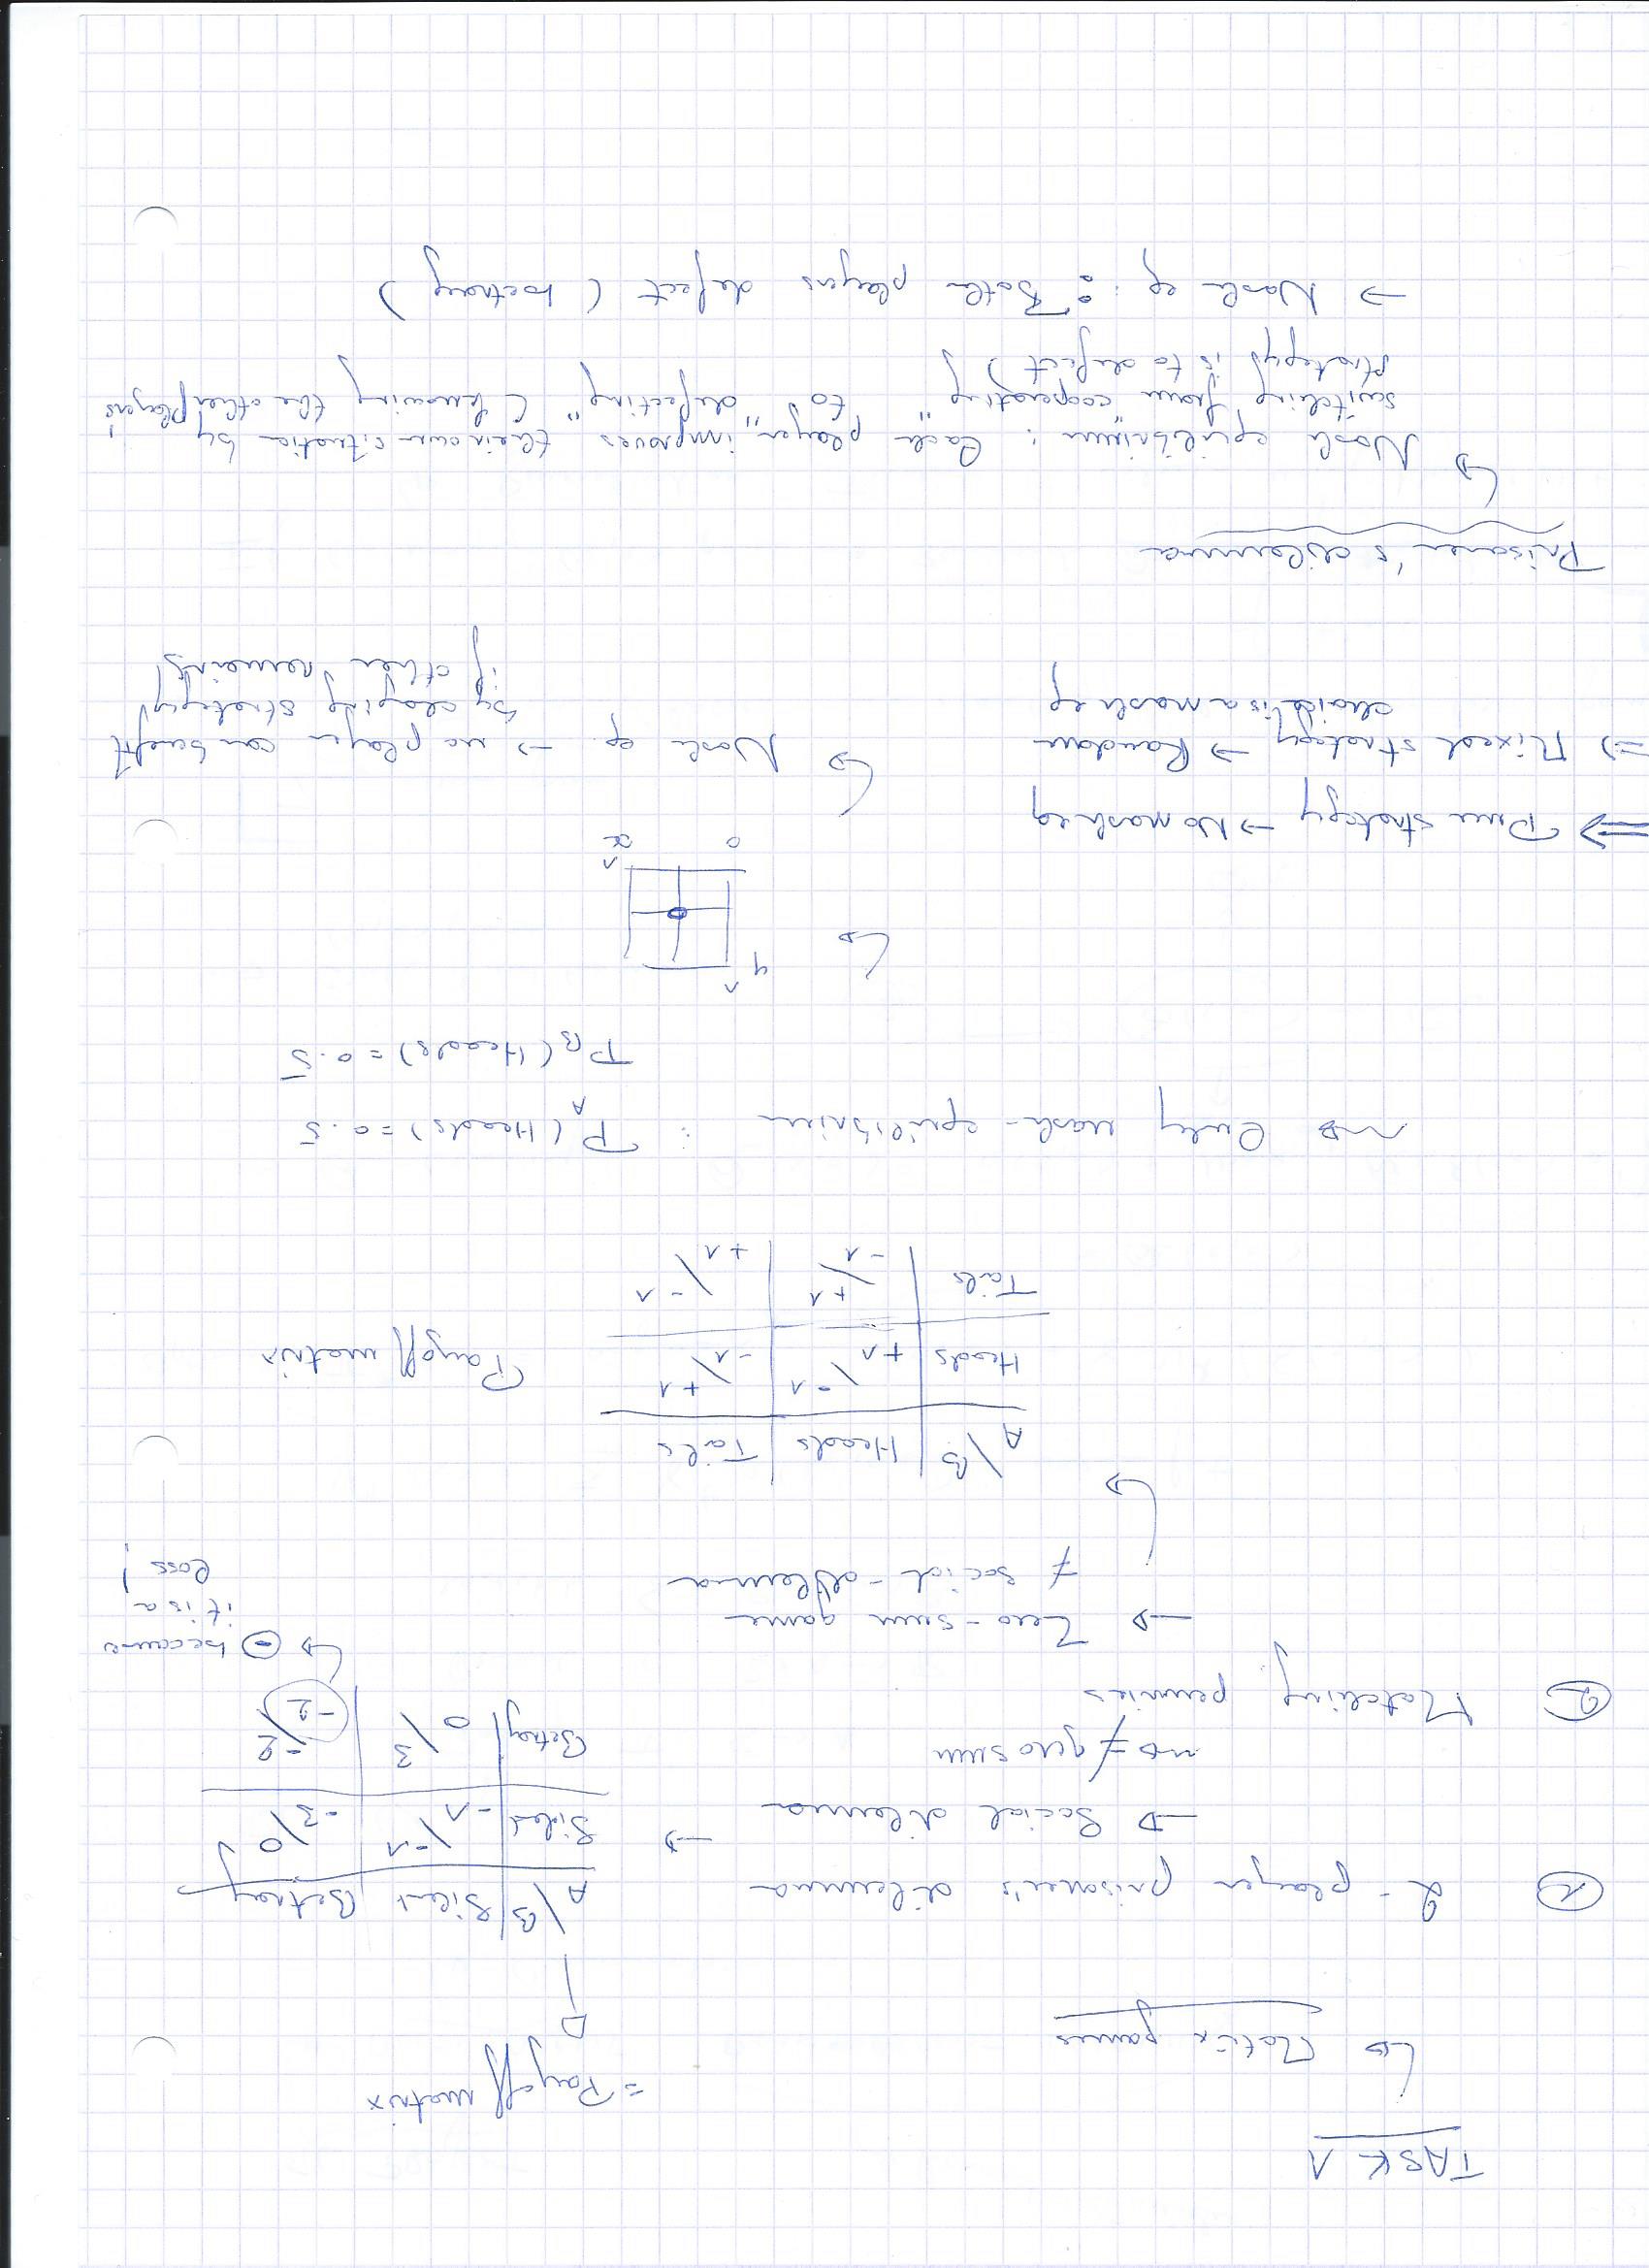 TASK 1
= Payoff matrix
Matrix games
① 2-player prisoner's dilemma
→ Social dilemma →
⇝ ≠ zero sum
A\B | Silent | Betray
Silent | -1\-1 | -3\0
Betray | 0\3 | -2\-2
⊖ because
it is a
loss!
② Matching pennies
→ Zero-sum game
≠ social-dilemma
A\B | Heads | Tails
Heads | +1\-1 | -1\+1
Tails | -1\+1 | +1\-1
Payoff matrix
⇝ Only nash-equilibrium : P_A (Heads) = 0.5
P_B (Heads) = 0.5
y
0 x
⇒ Pure strategy → No nash eq
⇒ Mixed strategy → Random
choice is a nash eq
Nash eq. → no player can benefit
by changing strategy
if other remains
Prisoner's dilemma
Nash equilibrium : Each player improves their own situation by
switching from "cooperating" to "defecting" (knowing the other players'
strategy is to defect)
→ Nash eq : Both players defect (betray)